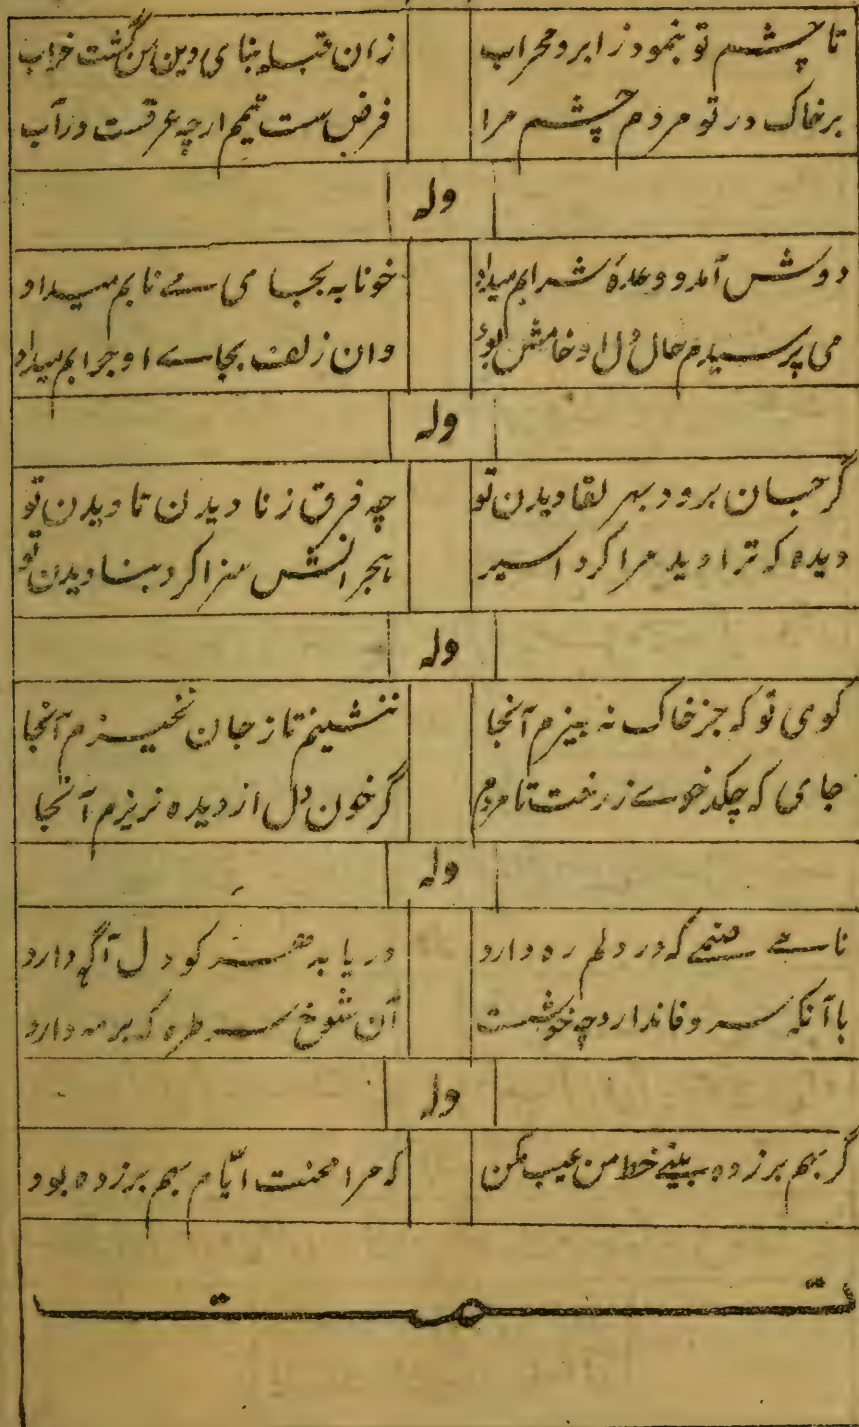 تا چشم تو بنمود ز ابرو محراب زان قبله بنای دین من گشت خراب
بر خاک در تو مردم چشم مرا فرض ست تیمم ارچه غرقست در آب
وله
دوش آمد و وعدهٔ شرابم میداد خونابه بجای می نابم میداد
می پرسیدم حال دل او خامش بود وان زلف بجای او جوابم میداد
وله
گر جان برود بهر لقا دیدن تو چه فرق ز نا دیدن تا دیدن تو
دیده که ترا دید مرا کرد اسیر هجرانش سزا کرد بنا دیدن تو
وله
کوی تو که جز خاک نه بیزم آنجا ننشینم تا ز جان نخیزم آنجا
جای که چکد خوے ز رخت نامردم گر خون دل از دیده نریزم آنجا
وله
صنمے که در دلم ره دارد دریابد هر کو دل آگه دارد
با آنکه سر وفا ندارد چه خوشست آن شوخ سر طره که بر مه دارد
وله
گر بهم بر زده بینے خط من عیب مکن که مرا محنت ایّام بهم بر زده بود
تمت